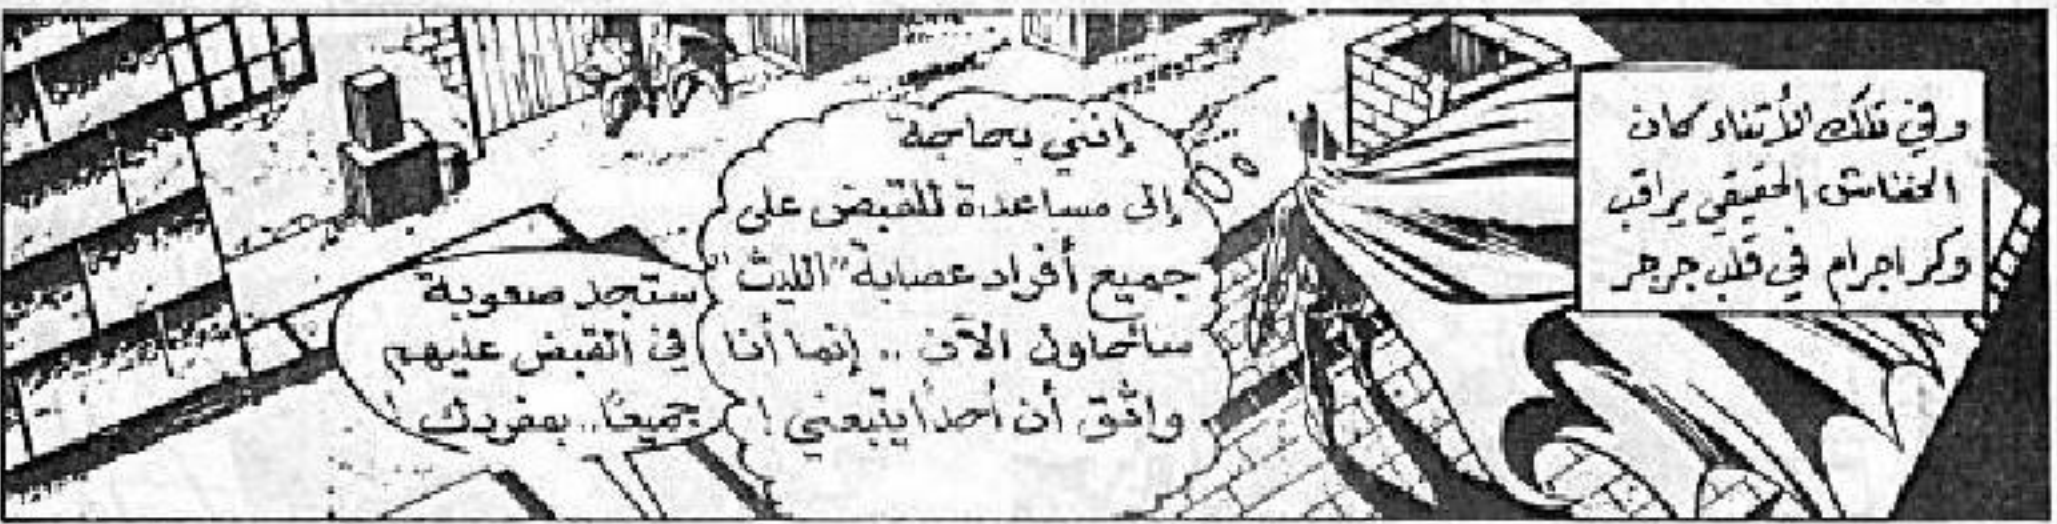 وفي تلك الأثناء كان
الخفاش الحقيقي يراقب
وكر اجرام في قلب جرجر
إنني بحاجة
إلى مساعدة للقبض على
جميع أفراد عصابة "الليث"
سأحاول الآن .. إنما أنا
واثق أن أحداً يتبعني !
ستجد صعوبة
في القبض عليهم
جميعاً.. بمفردك !